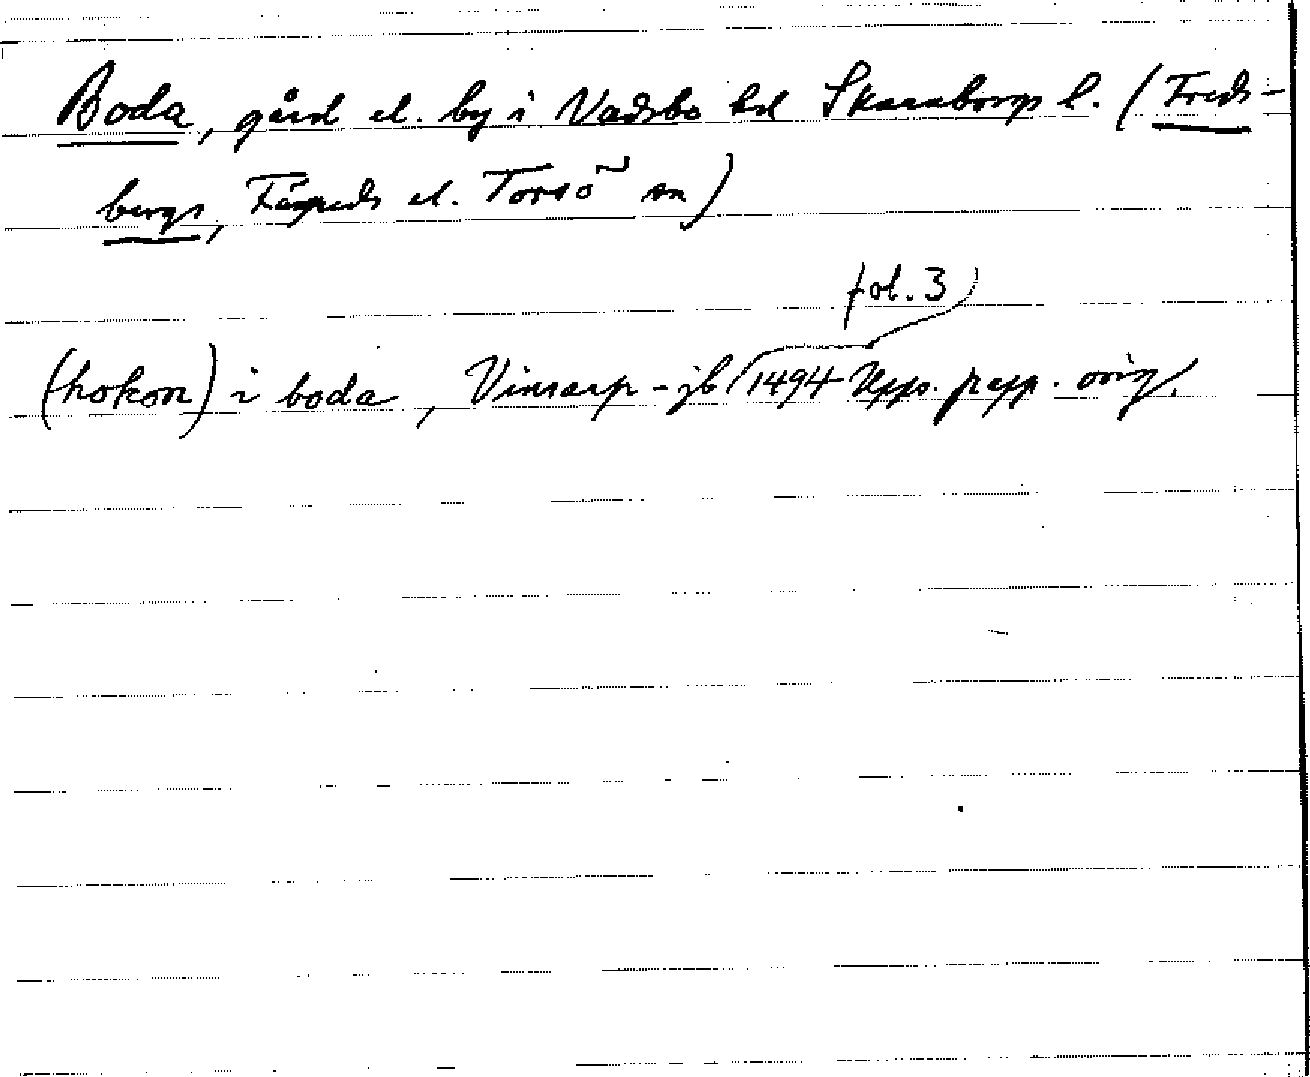 Boda, gård el. by i Vadsbo hd Skaraborgs l. (Freds-
bergs, Fägreds el. Torsö sn)
fol. 3
(hokon) i boda, Vinsarp-jb 1494 Upps. papp. orig.